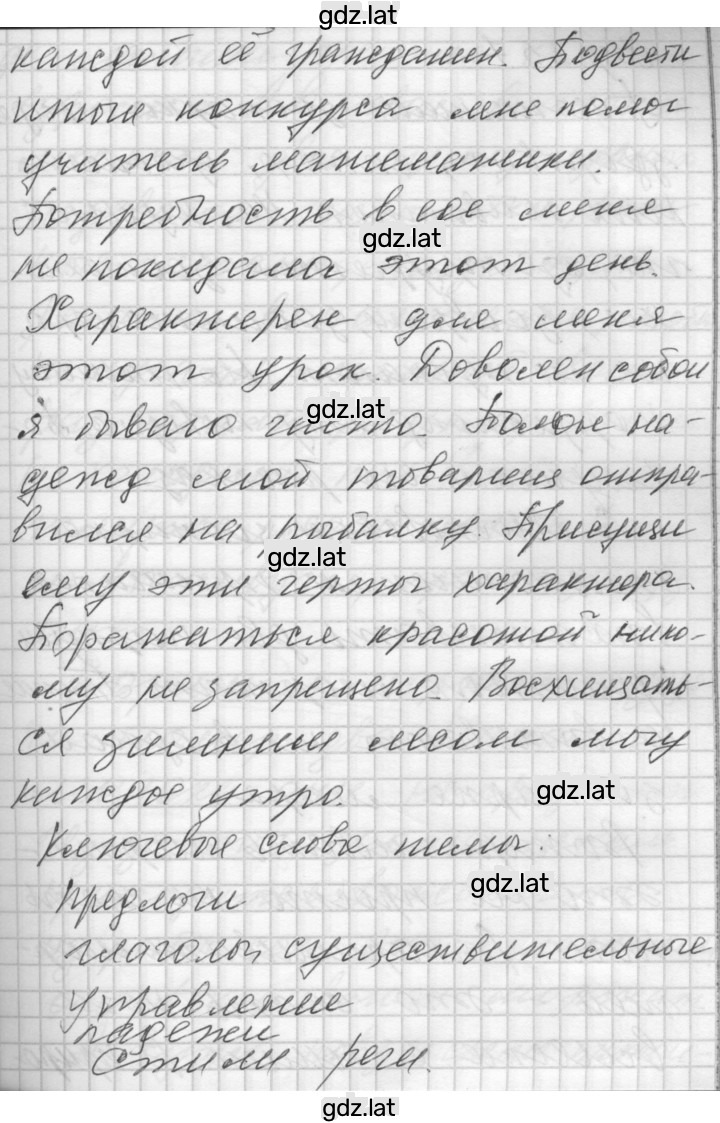 gdz.lat
каждой её гражданин. Подвести
итоги конкурса мне помог
учитель математики.
Потребность в сое меня
gdz.lat
не покидала этот день.
Характерен для меня
этот урок. Доволен собой
gdz.lat
я бываю часто. Полон на-
дежд мой товарищ отпра-
вился на рыбалку. Присущи
gdz.lat
ему эти черты характера.
Поражаться красотой нико-
му не запрещено. Восхищать-
ся зимним лесом могу
каждое утро.
gdz.lat
Ключевые слова темы:
gdz.lat
предлоги
глаголы, существительные
управление
падежи
Стили речи.
gdz.lat